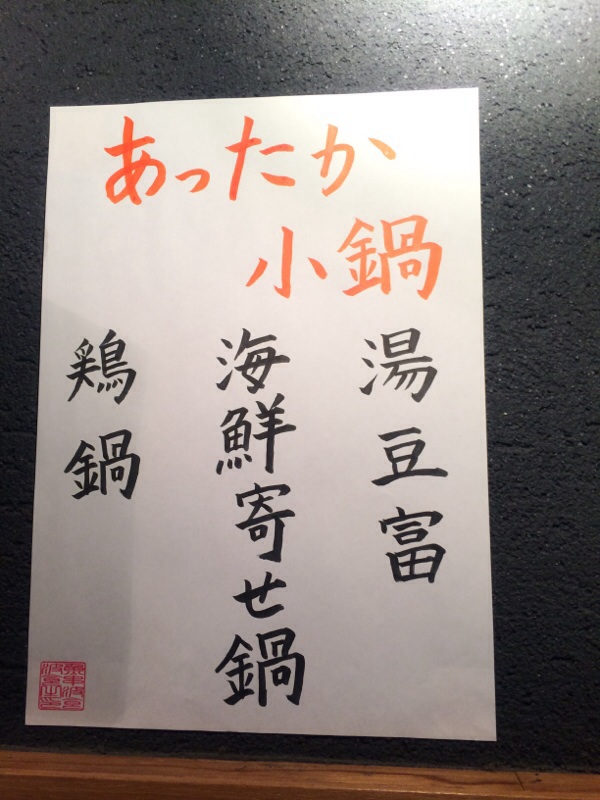 あったか
小鍋
湯豆富
海鮮寄せ鍋
鶏鍋